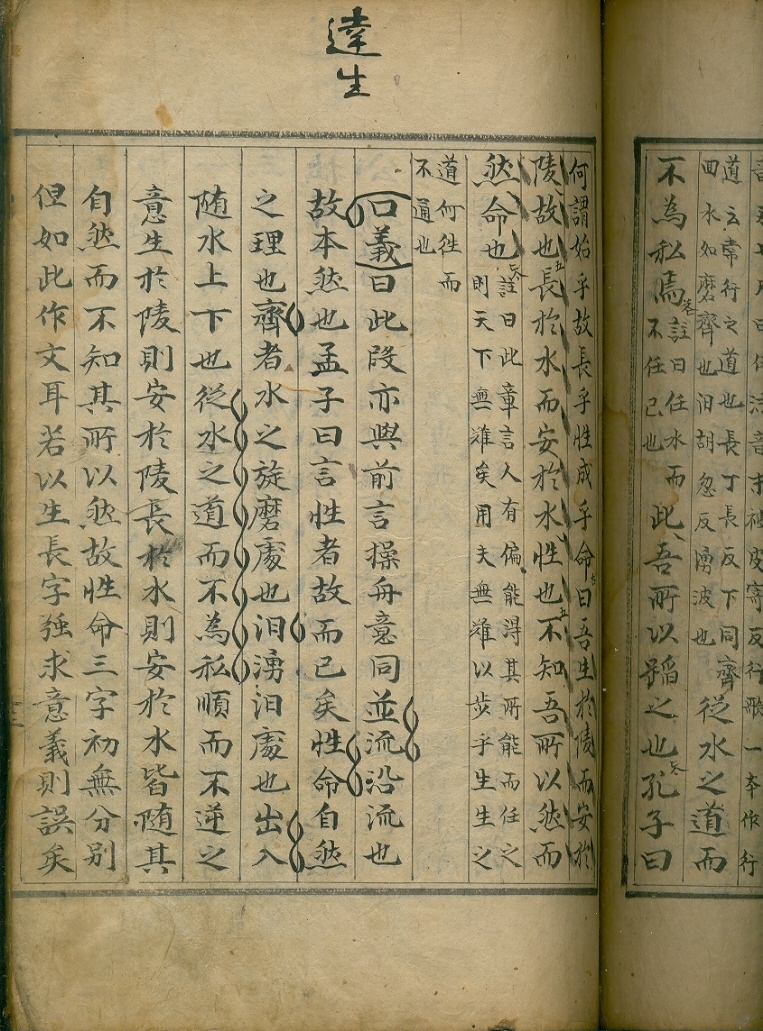 道云常行之道也長丁長反下同齊
回水如磨齊也汩胡忽反湧波也
從水之道而
不為私焉
註曰任水而
不任己也
此吾所以蹈之也孔子曰
達生
何謂始乎故長乎性成乎命曰吾生於陵而安於
陵故也長於水而安於水性也不知吾所以然而
然命也
註曰此章言人有偏能得其所能而任之
則天下無難矣用夫無難以涉乎生生之
道何往而
不通也
口義曰此段亦與前言操舟意同並流沿流也
故本然也孟子曰言性者故而已矣性命自然
之理也齊者水之旋磨處也汩湧汩處也出入
随水上下也從水之道而不為私順而不逆之
意生於陵則安於陵長於水則安於水皆随其
自然而不知其所以然故性命三字初無分別
但如此作文耳若以生長字强求意義則誤矣